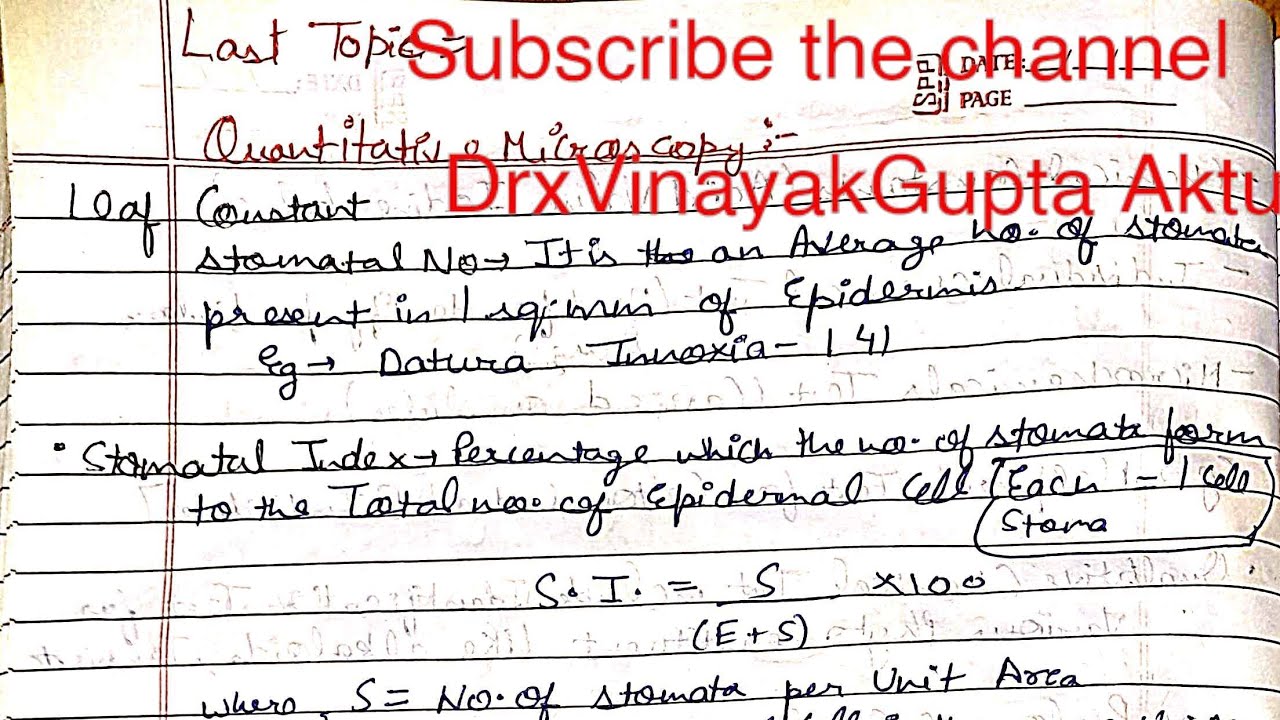 Last Topic =
Subscribe the channel
DATE:
PAGE
Quantitative Microscopy :-
DrxVinayakGupta Aktu
Leaf Constant
Stomatal No → It is the an Average no. of stomata
present in 1 sq. mm of Epidermis
Eg → Datura Innoxia - 141
• Stomatal Index → Percentage which the no. of stomata form
to the Total no. of Epidermal Cell [Each = 1 Cell
Stoma
S.I. = S × 100
(E + S)
where, S = No. of stomata per Unit Area